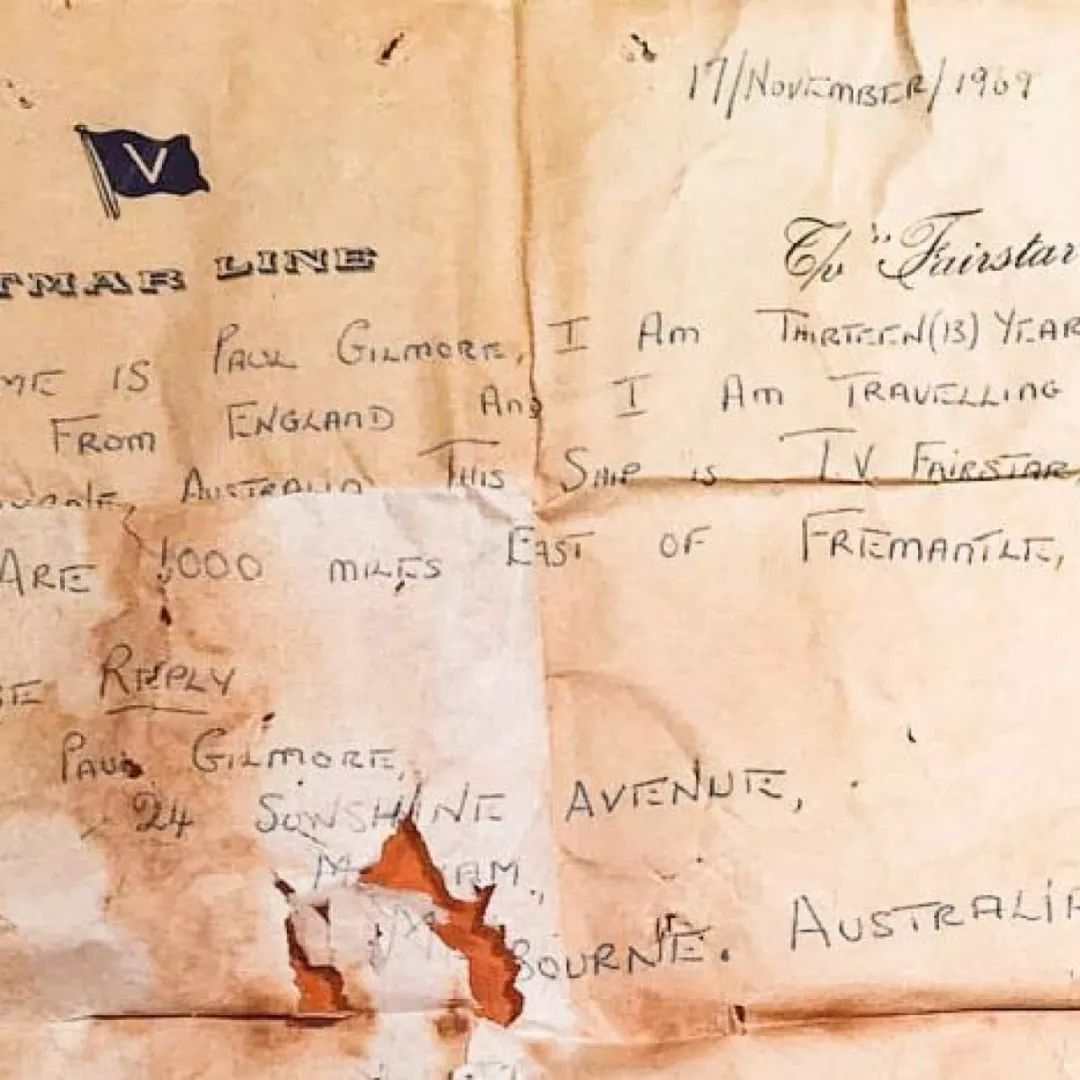 17/NOVEMBER/1969
V
TMAR LINE
T/v "Fairstar
ME IS PAUL GILMORE, I AM THIRTEEN(13) YEAR
FROM ENGLAND AND I AM TRAVELLING
AUSTRALIA THIS SHIP IS T.V FAIRSTAR,
ARE 1000 MILES EAST OF FREMANTLE,
SE REPLY
PAUL GILMORE,
24 SUNSHINE AVENUE,
M AM.,
BOURNE. AUSTRALIA